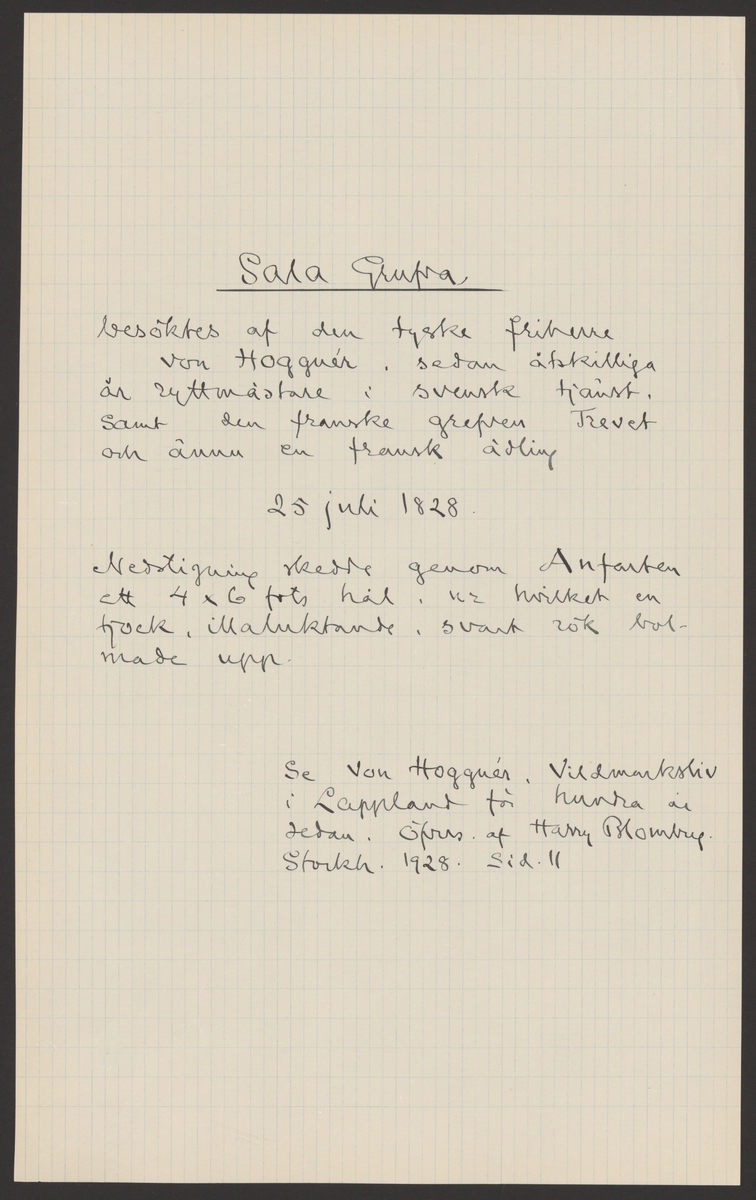 Sala Grufva
besöktes af den tyske friherre
von Hogguér, sedan åtskilliga
år ryttmästare i svensk tjänst.
Samt den franske grefven Trevet
och ännu en fransk ädling
25 juli 1828.
Nedstigning skedde genom Anfarten
ett 4 x 6 fots hål, ur hvilket en
tjock, illaluktande, svart rök bol-
made upp.
Se von Hogguér, Vildmarksliv
i Lappland för hundra år
sedan. Öfvers. af Harry Blomberg.
Stockh. 1928. Sid. 11